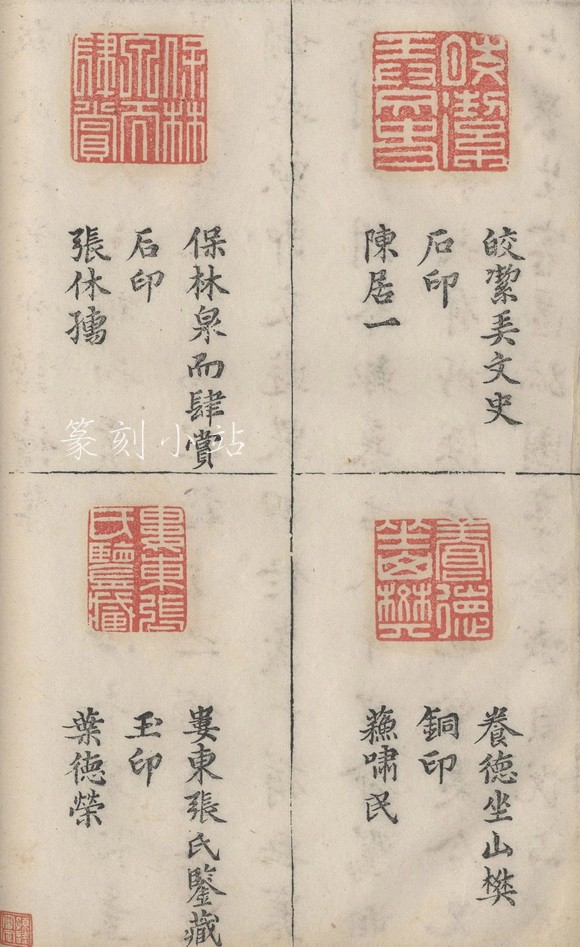 皎潔美文史
石印
陳居一
保林泉而肆賞
石印
張休孺
養德坐山樊
銅印
蘓嘯民
婁東張氏鑒藏
玉印
葉德榮
篆刻小站